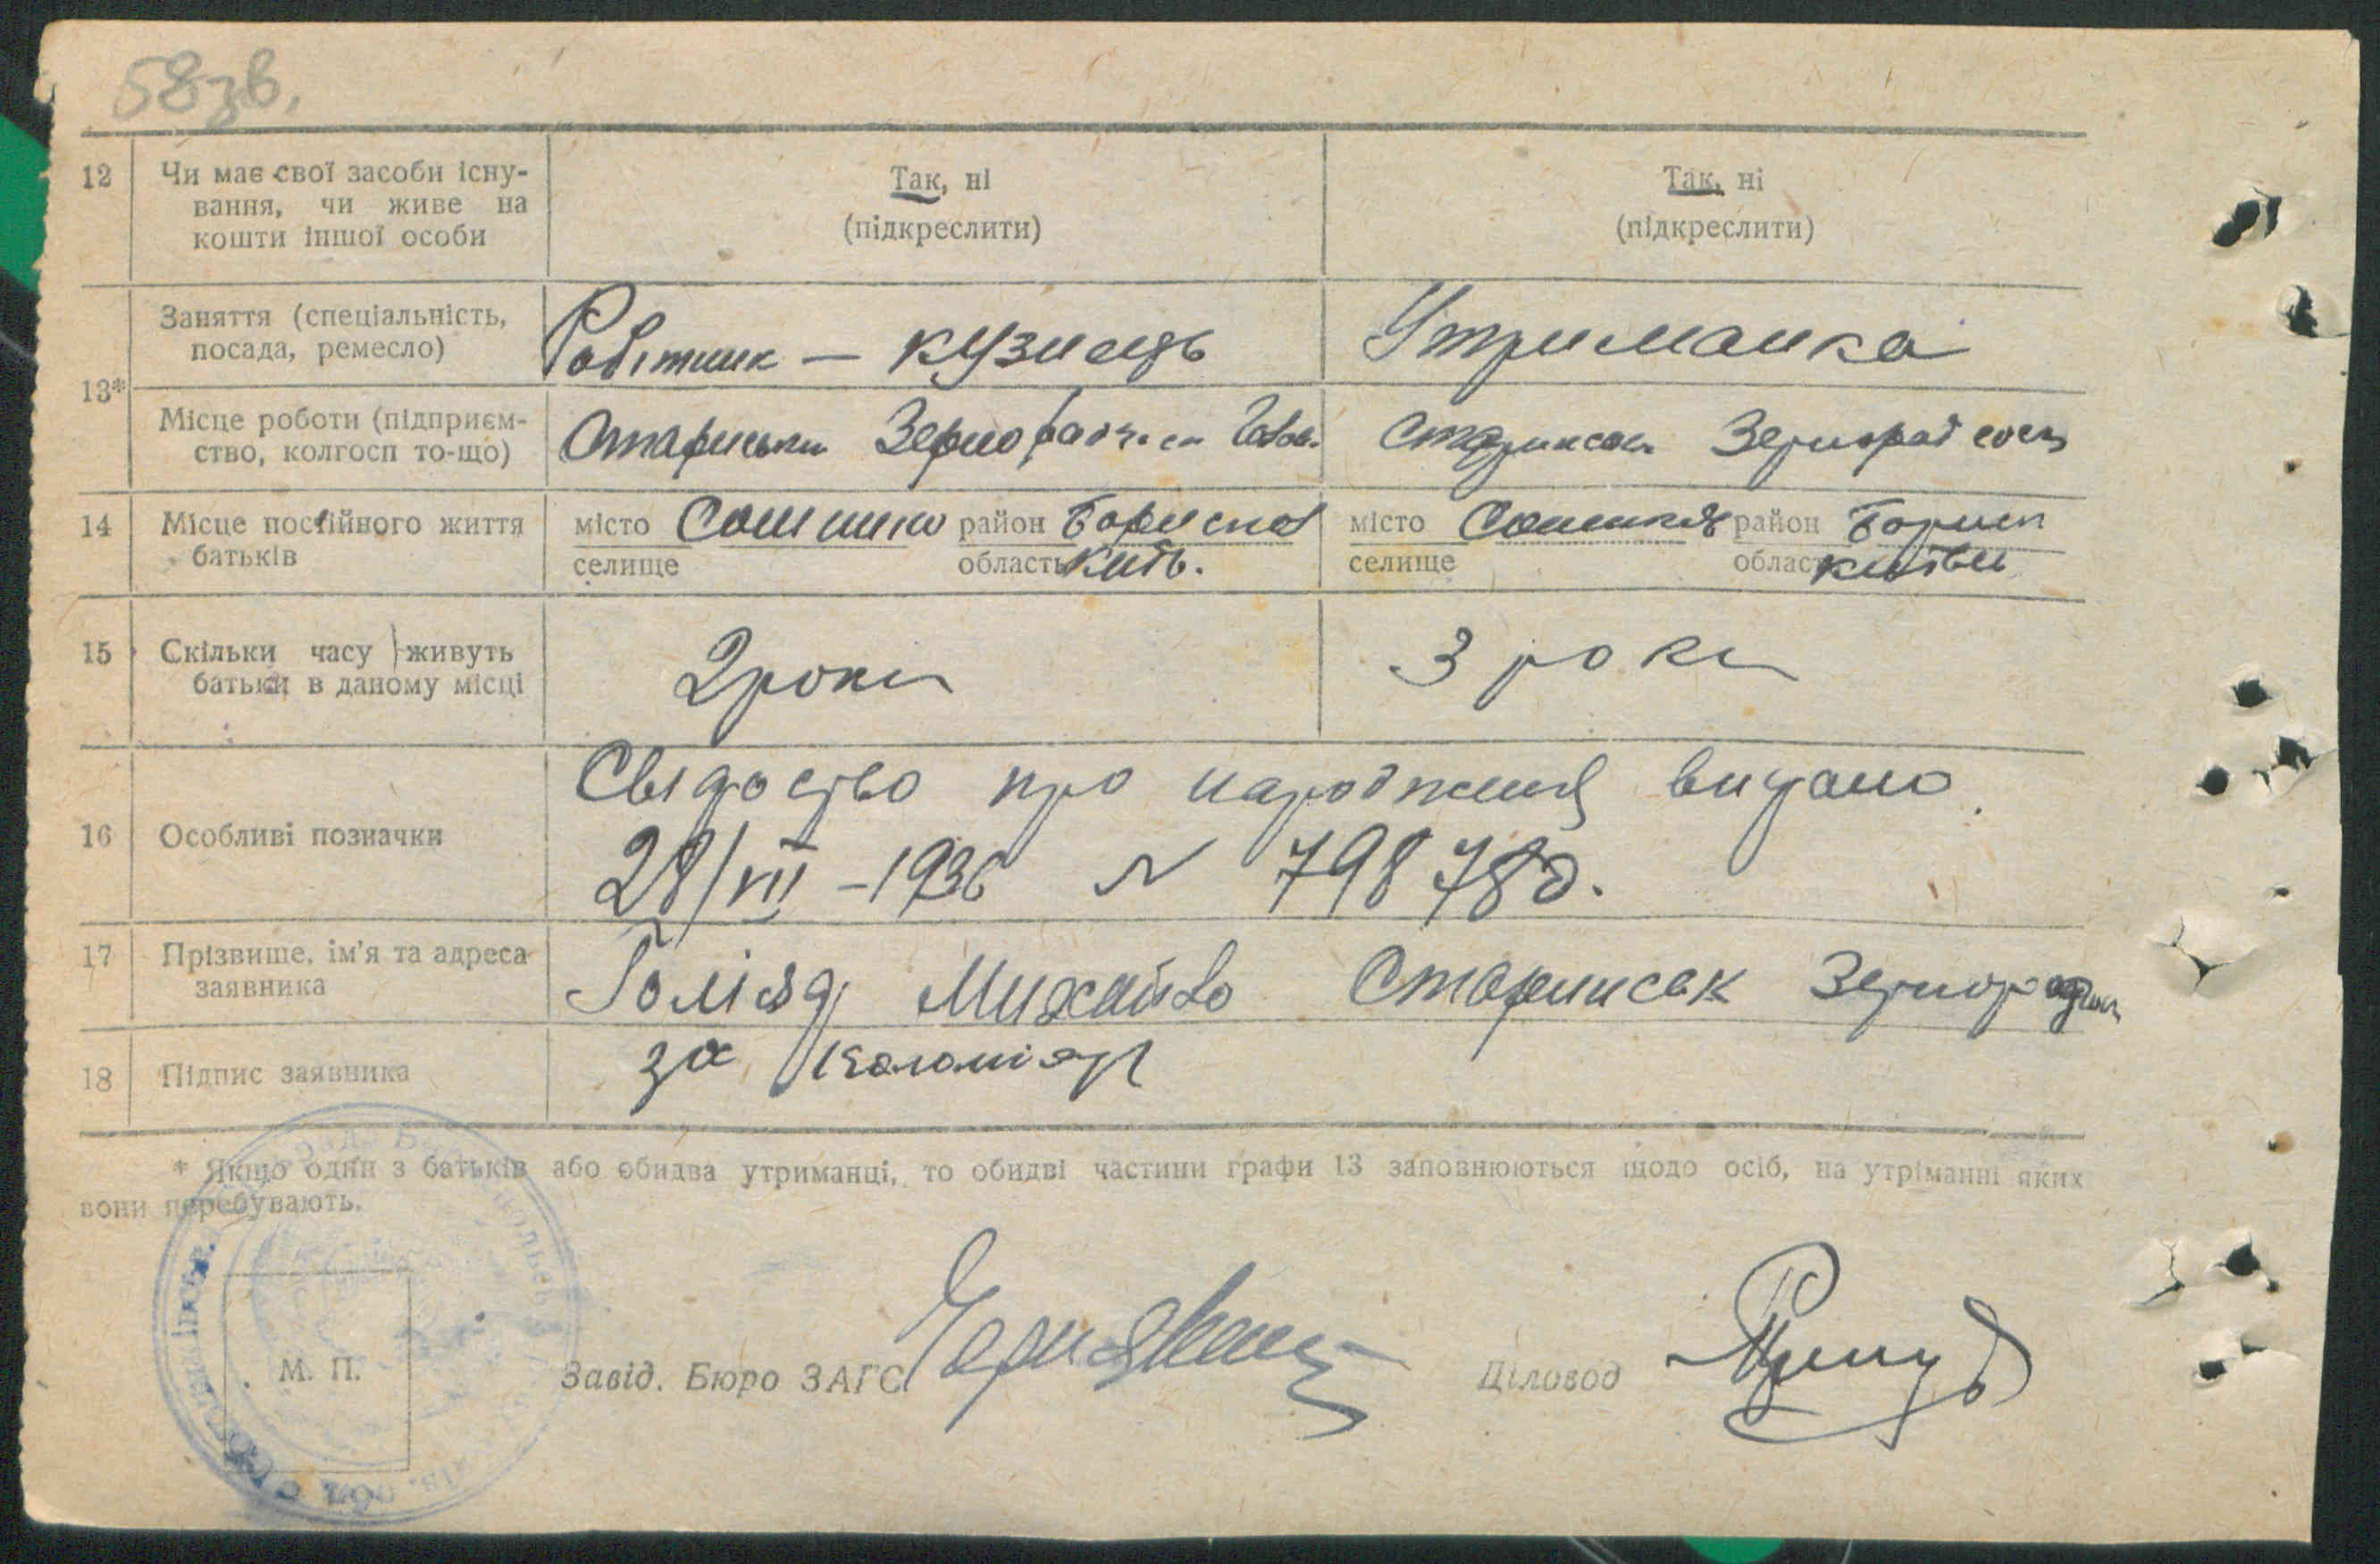 58зв.
12 Чи має свої засоби існу-
вання, чи живе на
кошти іншої особи
Так, ні
(підкреслити)
Так, ні
(підкреслити)
13*
Заняття (спеціальність,
посада, ремесло)
Робітник — кузнець
Утриманка
Місце роботи (підприєм-
ство, колгосп то-що)
Старинськи
Старинськ Зернорад
14 Місце постійного життя
батьків
місто Сошники район Бориспол
селище область Київ.
місто Сошники район Борисп
селище област Київськ
15 Скільки часу живуть
батьки в даному місці
2 роки
3 роки
16 Особливі позначки
Свідоство про народження видано.
28/VII – 1936 N 798780.
17 Прізвище, ім'я та адреса
заявника
Михайло Старинськ Зернорад
18 Підпис заявника
за
* Якщо один з батьків або обидва утриманці, то обидві частини графи 13 заповнюються щодо осіб, на утріманні яких
вони перебувають.
М. П.
Завід. Бюро ЗАГС
Діловод